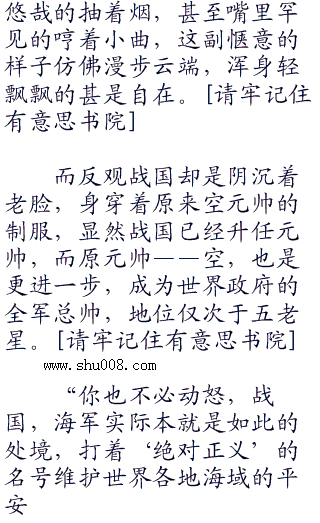 悠哉的抽着烟，甚至嘴里罕
见的哼着小曲，这副惬意的
样子仿佛漫步云端，浑身轻
飘飘的甚是自在。[请牢记住
有意思书院]
而反观战国却是阴沉着
老脸，身穿着原来空元帅的
制服，显然战国已经升任元
帅，而原元帅——空，也是
更进一步，成为世界政府的
全军总帅，地位仅次于五老
星。[请牢记住有意思书院]
www.shu008.com
“你也不必动怒，战
国，海军实际本就是如此的
处境，打着‘绝对正义’的
名号维护世界各地海域的平
安